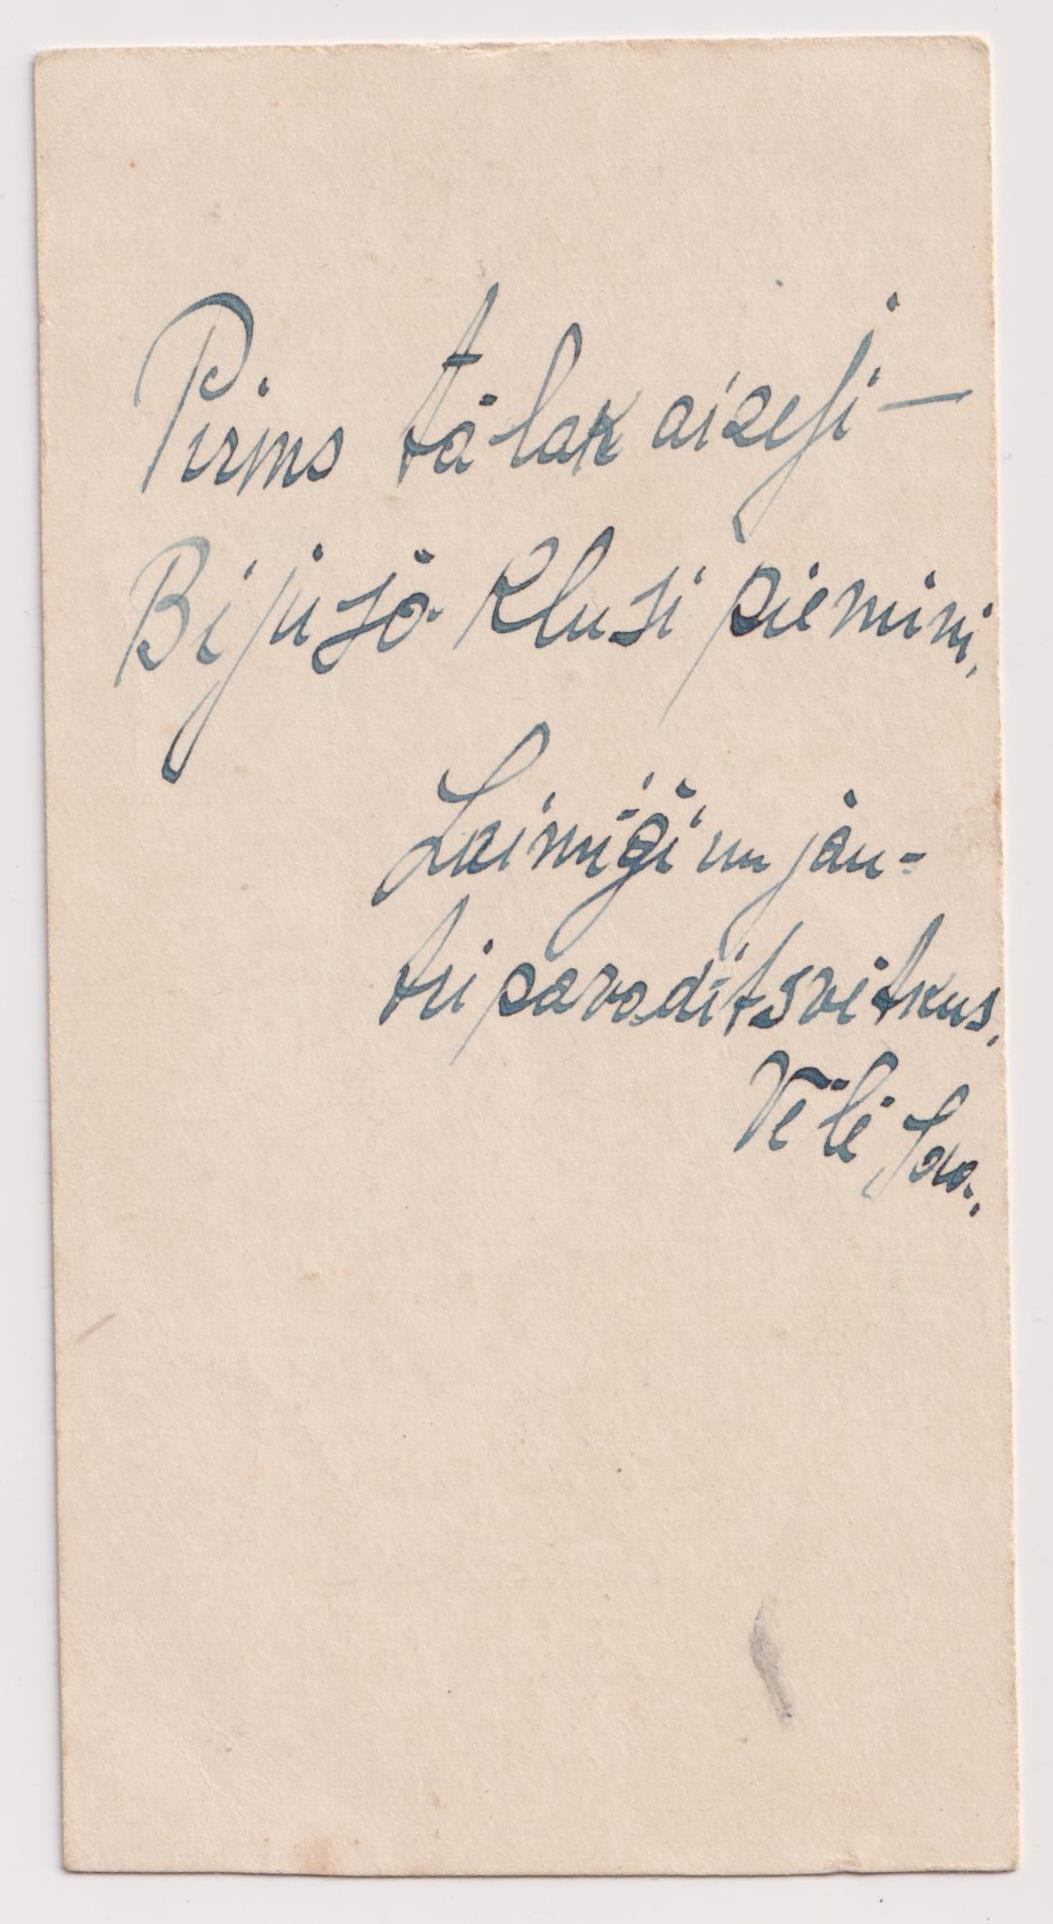 Pirms tālāk aizeji —
Bijušo klusi piemini,
Laimīgi un jau-
tri pavadīt svētkus,
Vēlē